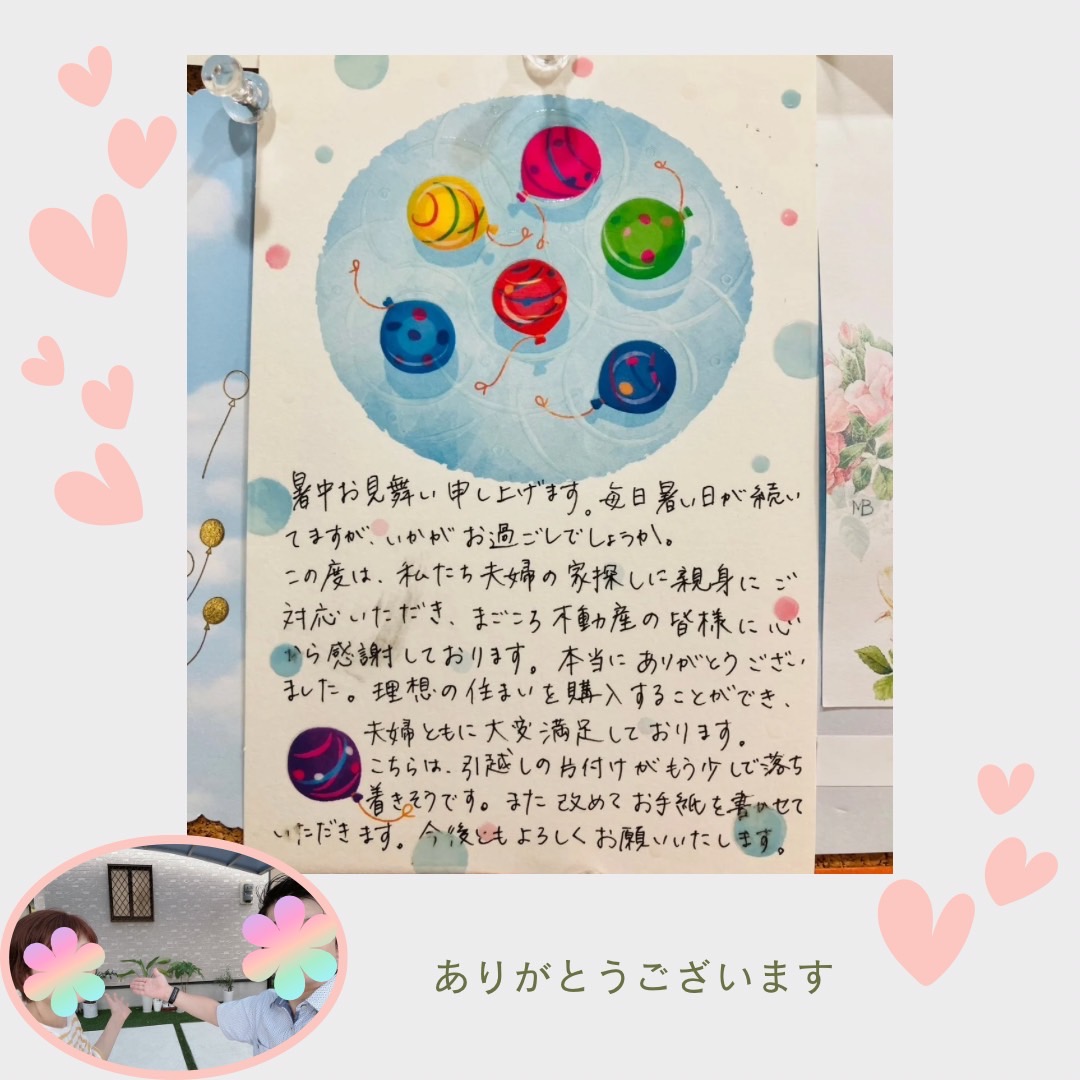 暑中お見舞い申し上げます。毎日暑い日が続い
てますが、いかがお過ごしでしょうか。
この度は、私たち夫婦の家探しに親身にご
対応いただき、まごころ不動産の皆様に心
から感謝しております。本当にありがとうござい
ました。理想の住まいを購入することができ、
夫婦ともに大変満足しております。
こちらは、引越しの片付けがもう少しで落ち
着きそうです。また改めてお手紙を書かせて
いただきます。今後ともよろしくお願いいたします。
MB
ありがとうございます